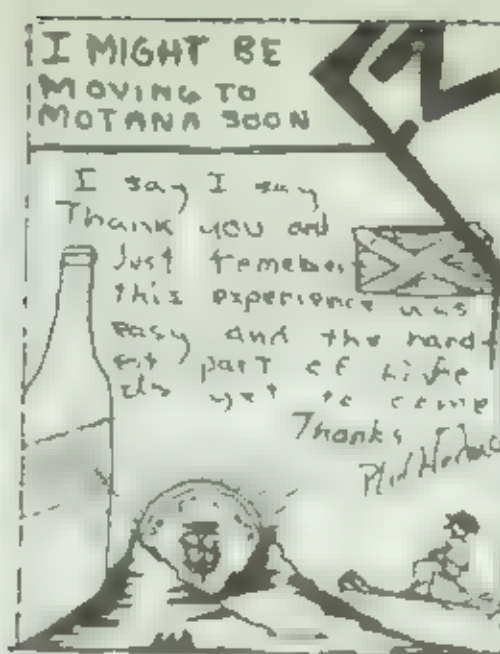 I MIGHT BE
MOVING TO
MOTANA SOON
I say I say
Thank you and
Just remember
this experience was
easy and the hard-
est part of life
is yet to come
Thanks
Phil